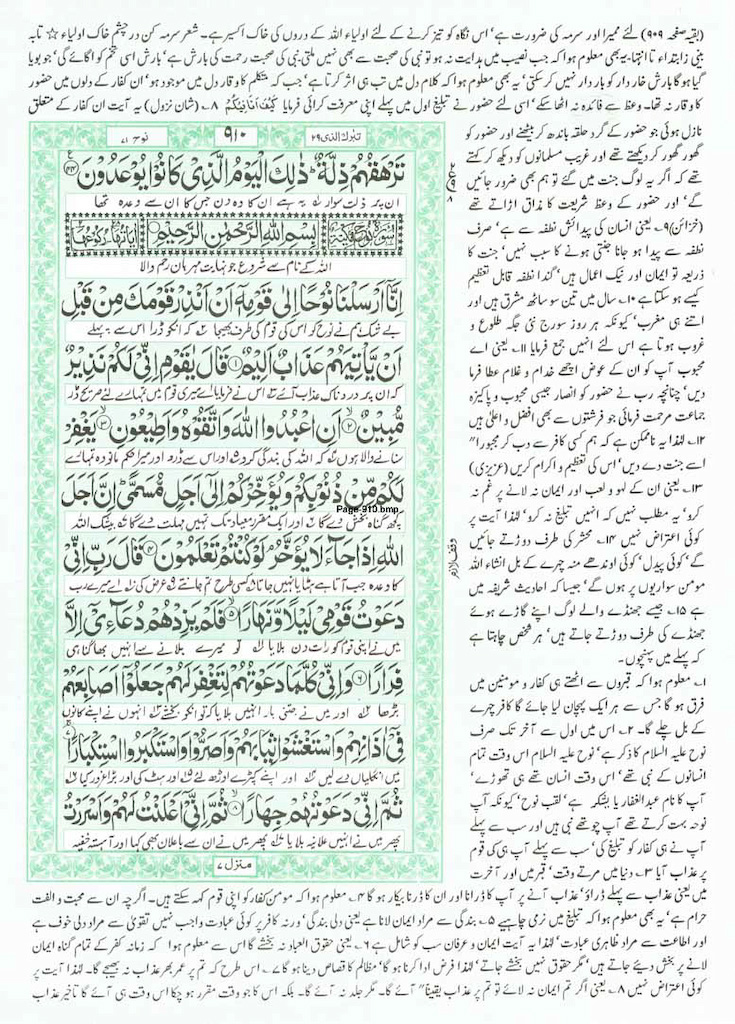 (بقیہ صفحہ ۹۰۹) لئے ممیرا اور سرمہ کی ضرورت ہے‘ اس نگاہ کو تیز کرنے کے لئے اولیاء اللہ کے دروں کی خاک اکسیر ہے۔ شعر سرمہ کن در چشم خاک اولیاء ☆ تابہ
بینی زابتداء تا انتہا۔ یہ بھی معلوم ہوا کہ جب نصیب میں ہدایت نہ ہو تو نبی کی صحبت سے بھی نہیں ملتی‘ نبی کی صحبت رحمت کی بارش ہے‘ بارش اسی تخم کو اگائے گی‘ جو بویا
گیا ہو گا بارش خار دار کو بار دار نہیں کر سکتی‘ یہ بھی معلوم ہوا کہ کلام دل میں تب ہی اثر کرتا ہے‘ جب کہ متکلم کا وقار دل میں موجود ہو‘ ان کفار کے دلوں میں حضور
کا وقار نہ تھا۔ وعظ سے فائدہ نہ اٹھا سکے‘ اسی لئے حضور نے تبلیغ اول میں پہلے اپنی معرفت کرائی فرمایا کَیْفَ اَنَا فِیْکُمْ ۸۔ (شان نزول) یہ آیت ان کفار کے متعلق
نازل ہوئی جو حضور کے گرد حلقہ باندھ کر بیٹھتے اور حضور کو
گھور گھور کر دیکھتے تھے اور غریب مسلمانوں کو دیکھ کر کہتے
تھے کہ اگر یہ لوگ جنت میں گئے تو ہم بھی ضرور جائیں
گے‘ اور حضور کے وعظ شریعت کا مذاق اڑاتے تھے
(خزائن) ۹۔ یعنی انسان کی پیدائش نطفہ سے ہے‘ صرف
نطفہ سے پیدا ہو جانا جنتی ہونے کا سبب نہیں‘ جنت کا
ذریعہ تو ایمان اور نیک اعمال ہیں‘ گندا نطفہ قابل تعظیم
کیسے ہو سکتا ہے ۱۰۔ سال میں تین سو ساٹھ مشرق ہیں اور
اتنے ہی مغرب‘ کیونکہ ہر روز سورج نئی جگہ طلوع و
غروب ہوتا ہے اس لئے انہیں جمع فرمایا ۱۱۔ یعنی اے
محبوب آپ کو ان کے عوض اچھے خدام و غلام عطا فرما
دیں‘ چنانچہ رب نے حضور کو انصار جیسی محبوب و پاکیزہ
جماعت مرحمت فرمائی جو فرشتوں سے بھی افضل و اعلیٰ ہیں
۱۲۔ لہٰذا یہ ناممکن ہے کہ ہم کسی کافر سے دب کر مجبورا"
اسے جنت دے دیں‘ اس کی تعظیم و اکرام کریں (عزیزی)
۱۳۔ یعنی ان کے لہو و لعب اور ایمان نہ لانے پر غم نہ
کرو‘ یہ مطلب نہیں کہ انہیں تبلیغ نہ کرو‘ لہٰذا آیت پر
کوئی اعتراض نہیں ۱۴۔ محشر کی طرف دوڑتے جائیں
گے‘ کوئی پیدل‘ کوئی اوندھے منہ چہرے کے بل انشاء اللہ
مومن سواریوں پر ہوں گے‘ جیسا کہ احادیث شریفہ میں
ہے ۱۵۔ جیسے جھنڈے والے لوگ اپنے گاڑے ہوئے
جھنڈے کی طرف دوڑتے جاتے ہیں‘ ہر شخص چاہتا ہے
کہ پہلے میں پہنچوں۔
۱۔ معلوم ہوا کہ قبروں سے اٹھتے ہی کفار و مومنین میں
فرق ہو گا جس سے ہر ایک پہچان لیا جائے گا کافر چہرے
کے بل چلے گا۔ ۲۔ اس میں اول سے آخر تک صرف
نوح علیہ السلام کا ذکر ہے‘ نوح علیہ السلام اس وقت تمام
انسانوں کے نبی تھے‘ اس وقت انسان تھے ہی تھوڑے‘
آپ کا نام عبدالغفار یا یشکر ہے‘ لقب نوح‘ کیونکہ آپ
نوحہ بہت کرتے تھے آپ چوتھے نبی ہیں اور سب سے پہلے
آپ نے ہی کفار کو تبلیغ کی‘ سب سے پہلے آپ ہی کی قوم
پر عذاب آیا ۳۔ دنیا میں مرتے وقت‘ قبر میں اور آخرت
تبٰرک الذی ۲۹
۹۱۰
نوح ۷۱
تَرْهَقُهُمْ ذِلَّةٌ ذٰلِكَ الْيَوْمُ الَّذِیْ كَانُوْا يُوْعَدُوْنَ ﴿۴۴﴾
ان پر ذلت سوار یہ ہے ان کا وہ دن جس کا ان سے وعدہ تھا
سورۃ نوح مکیۃ بِسْمِ اللهِ الرَّحْمٰنِ الرَّحِيْمِ
اللہ کے نام سے شروع جو نہایت مہربان رحم والا
اِنَّآ اَرْسَلْنَا نُوْحًا اِلٰى قَوْمِهٖٓ اَنْ اَنْذِرْ قَوْمَكَ مِنْ قَبْلِ
بے شک ہم نے نوح کو اس کی قوم کی طرف بھیجا کہ انکو ڈرا اس سے پہلے
اَنْ يَّاْتِيَهُمْ عَذَابٌ اَلِيْمٌ ﴿۱﴾ قَالَ يٰقَوْمِ اِنِّیْ لَكُمْ نَذِيْرٌ
کہ ان پر دردناک عذاب آئے اس نے فرمایا اے میری قوم میں تمہارے لئے صریح ڈر
مُّبِيْنٌ ﴿۲﴾ اَنِ اعْبُدُوا اللهَ وَاتَّقُوْهُ وَاَطِيْعُوْنِ ﴿۳﴾ يَغْفِرْ
سنانے والا ہوں کہ اللہ کی بندگی کرو اور اس سے ڈرو اور میرا حکم مانو وہ تمہارے
لَكُمْ مِّنْ ذُنُوْبِكُمْ وَيُؤَخِّرْكُمْ اِلٰٓى اَجَلٍ مُّسَمًّى اِنَّ اَجَلَ
کچھ گناہ بخش دے گا اور ایک مقرر میعاد تک تمہیں مہلت دے گا بیشک اللہ
Page-910.bmp
اللهِ اِذَا جَآءَ لَا يُؤَخَّرُ لَوْ كُنْتُمْ تَعْلَمُوْنَ ﴿۴﴾ قَالَ رَبِّ اِنِّیْ
کا وعدہ جب آتا ہے ہٹایا نہیں جاتا کسی طرح تم جانتے عرض کی اے میرے رب
دَعَوْتُ قَوْمِیْ لَيْلًا وَّنَهَارًا ﴿۵﴾ فَلَمْ يَزِدْهُمْ دُعَآءِیْٓ اِلَّا
میں نے اپنی قوم کو رات دن بلایا تو میرے بلانے سے انہیں بھاگنا ہی
فِرَارًا ﴿۶﴾ وَاِنِّیْ كُلَّمَا دَعَوْتُهُمْ لِتَغْفِرَ لَهُمْ جَعَلُوْٓا اَصَابِعَهُمْ
بڑھا اور میں نے جتنی بار انہیں بلایا کہ تو انکو بخشے انہوں نے اپنے کانوں
فِیْٓ اٰذَانِهِمْ وَاسْتَغْشَوْا ثِيَابَهُمْ وَاَصَرُّوْا وَاسْتَكْبَرُوا اسْتِكْبَارًا ﴿۷﴾
میں انگلیاں دے لیں اور اپنے کپڑے اوڑھ لئے اور ہٹ کی اور بڑا غرور کیا
ثُمَّ اِنِّیْ دَعَوْتُهُمْ جِهَارًا ﴿۸﴾ ثُمَّ اِنِّیْٓ اَعْلَنْتُ لَهُمْ وَاَسْرَرْتُ
پھر میں نے انہیں علانیہ بلایا پھر میں نے ان سے باعلان بھی کہا اور آہستہ خفیہ
منزل ۷
وقف لازم
میں یعنی عذاب سے پہلے ڈراؤ‘ عذاب آنے پر آپ کا ڈرانا اور ان کا ڈرنا بیکار ہو گا ۴۔ معلوم ہوا کہ مومن کفار کو اپنی قوم کہہ سکتے ہیں۔ اگرچہ ان سے محبت و الفت
حرام ہے‘ یہ بھی معلوم ہوا کہ تبلیغ میں نرمی چاہیے ۵۔ بندگی سے مراد ایمان لانا ہے یعنی دلی بندگی‘ ورنہ کافر پر کوئی عبادت واجب نہیں تقویٰ سے مراد دلی خوف ہے
اور اطاعت سے مراد ظاہری عبادت‘ لہٰذا یہ آیت ایمان و عرفان سب کو شامل ہے ۶۔ یعنی حقوق العباد نہ بخشے گا اس سے معلوم ہوا کہ زمانہ کفر کے تمام گناہ ایمان
لانے پر بخش دیئے جاتے ہیں‘ مگر حقوق نہیں بخشے جاتے‘ لہٰذا قرض ادا کرنا ہو گا‘ مظالم کا قصاص دینا ہو گا ۷۔ اس طرح کہ تم پر عمر بھر عذاب نہ بھیجے گا۔ لہٰذا آیت پر
کوئی اعتراض نہیں ۸۔ یعنی اگر تم ایمان نہ لائے تو تم پر عذاب یقیناً" آئے گا۔ مگر جلد نہ آئے گا۔ بلکہ اس کا جو وقت مقرر ہو چکا اس وقت ہی آئے گا تاخیر عذاب